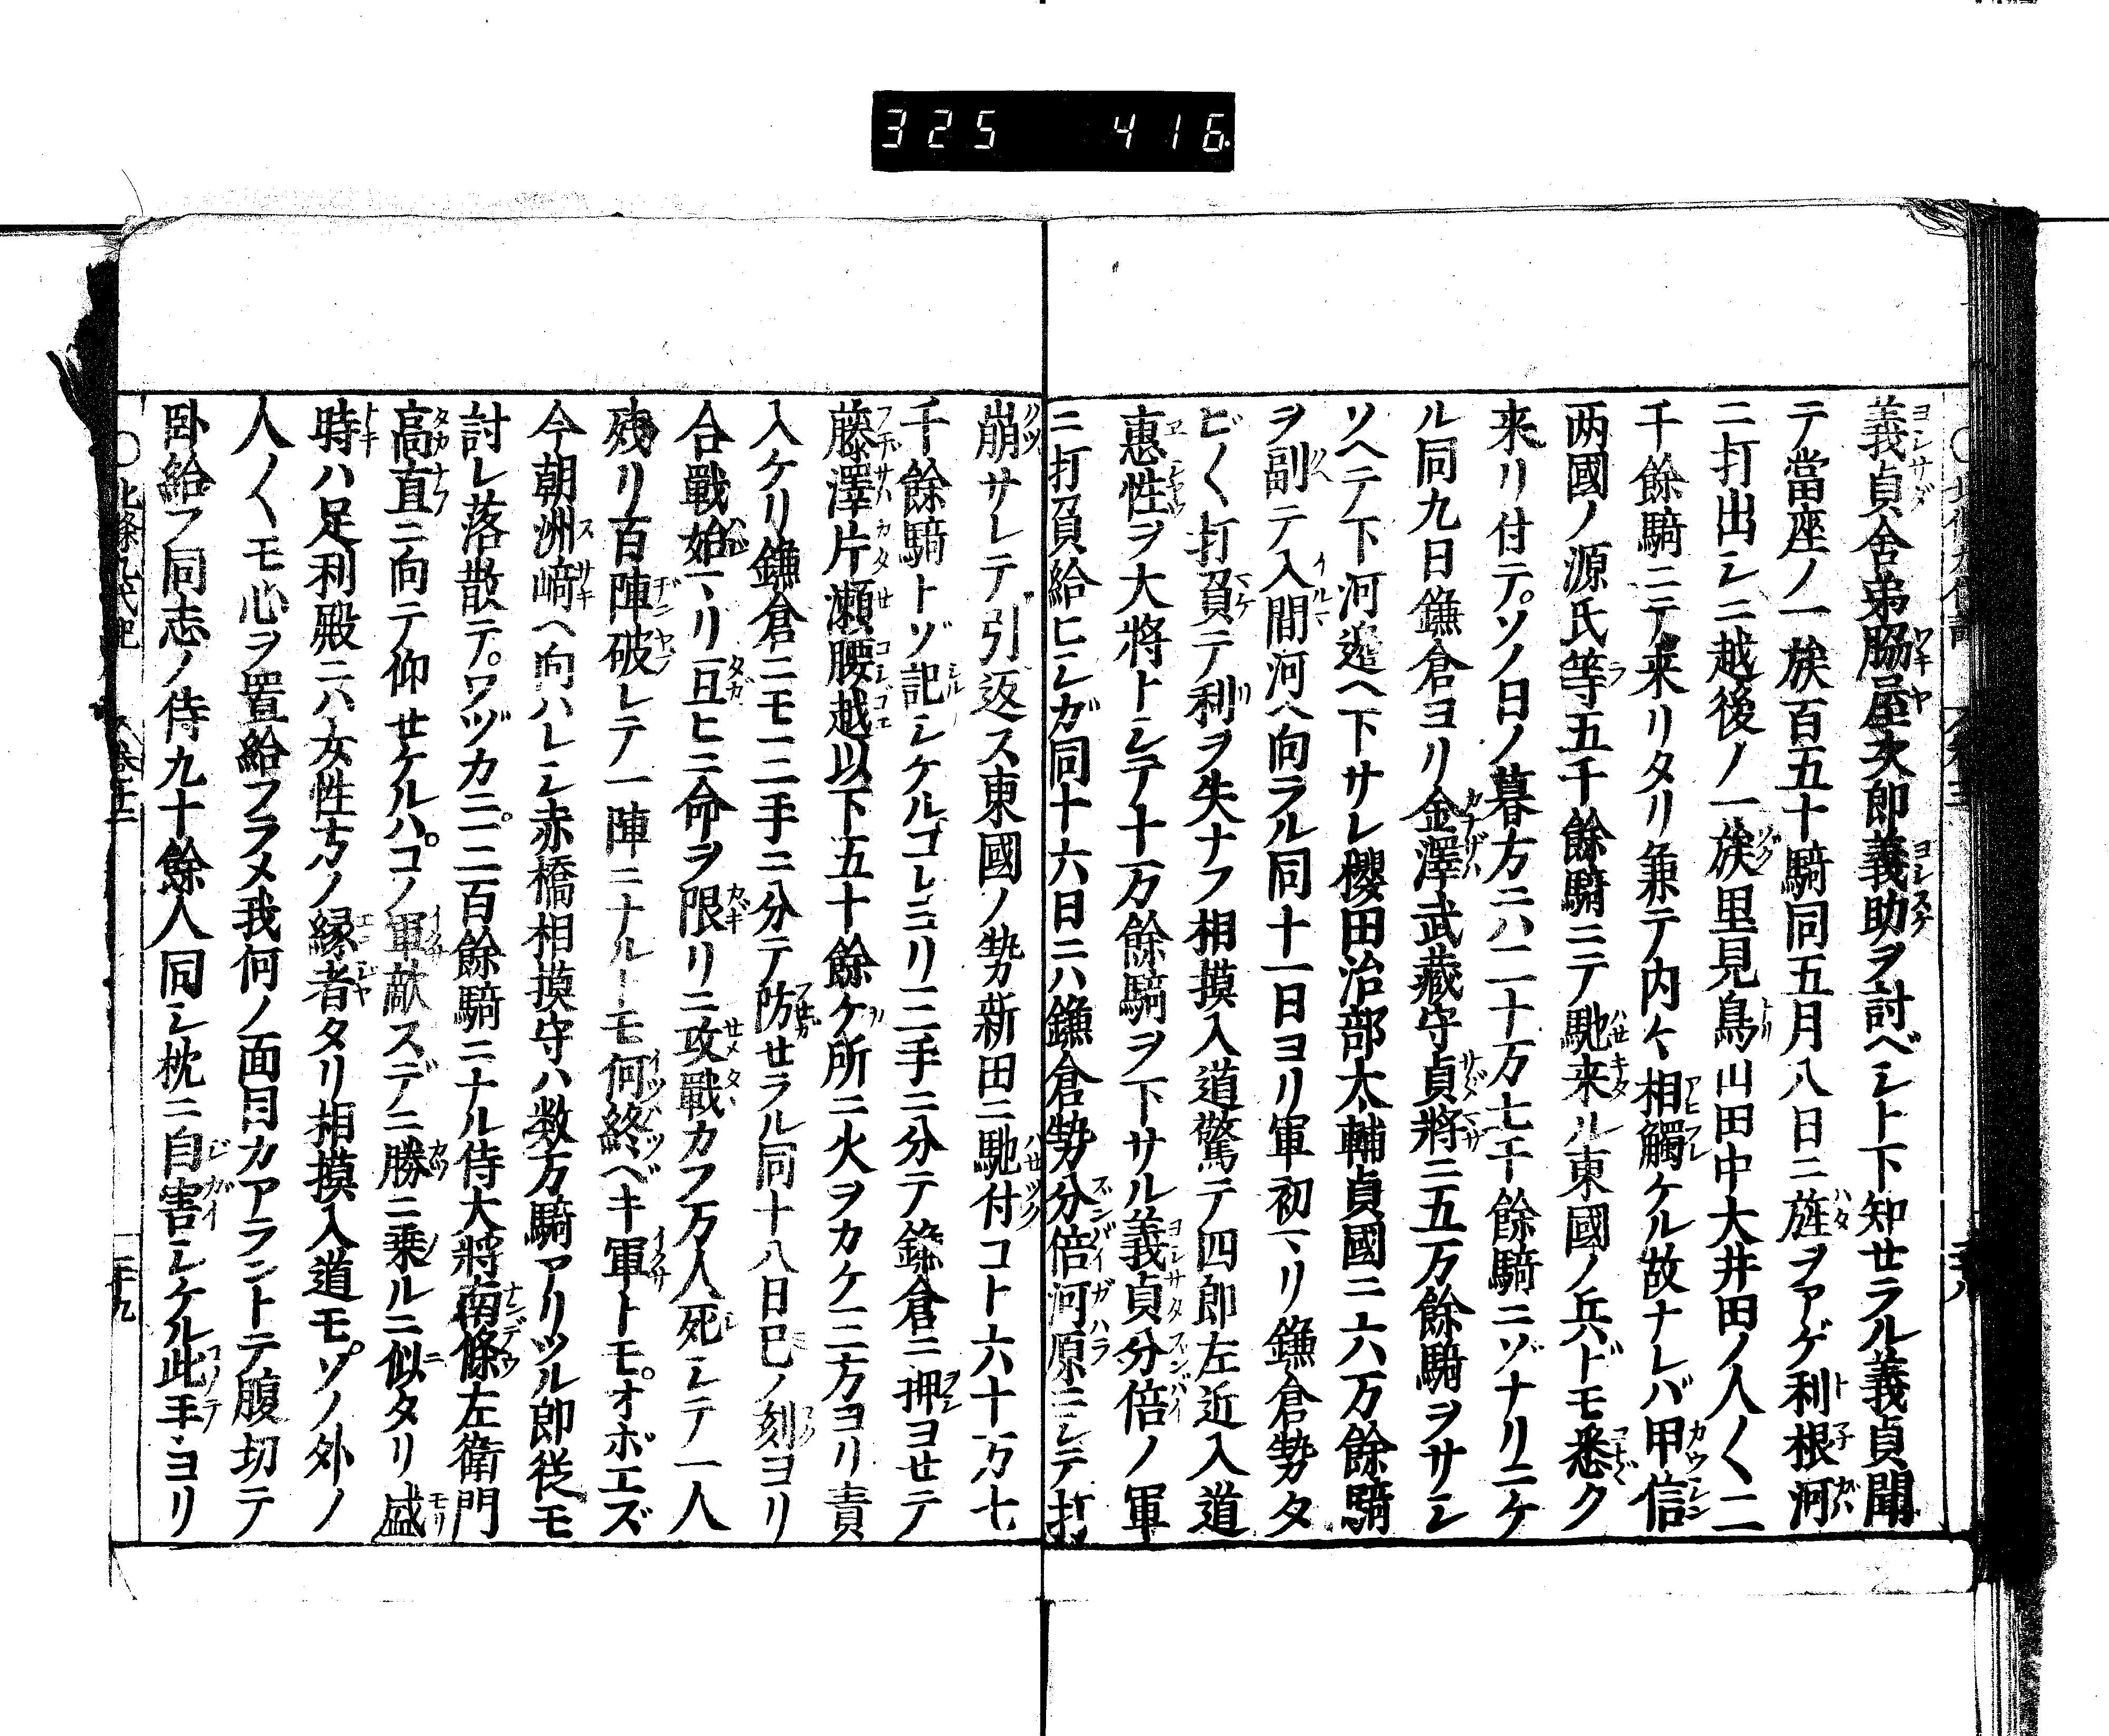 325 416
義貞舎弟脇屋次郎義助ヲ討ベシト下知セラル義貞聞
テ當座ノ一族百五十騎同五月八日ニ旌ヲアゲ利根河
ニ打出シニ越後ノ一族里見鳥山田中大井田ノ人〱二
千餘騎ニテ来リタリ兼テ内〻相觸ケル故ナレバ甲信
两國ノ源氏等五千餘騎ニテ馳来ル東國ノ兵ドモ悉ク
来リ付テソノ日ノ暮方ニハ二十万七千餘騎ニゾナリニケ
ル同九日鎌倉ヨリ金澤武藏守貞將ニ五万餘騎ヲサシ
ソヘテ下河邉ヘ下サレ櫻田治部太輔貞國ニ六万餘騎
ヲ副テ入間河ヘ向ラル同十一日ヨリ軍初マリ鎌倉勢タ
ビ〱打負テ利ヲ失ナフ相摸入道驚テ四郎左近入道
惠性ヲ大將トシテ十万餘騎ヲ下サル義貞分倍ノ軍
ニ打負給ヒシガ同十六日ニハ鎌倉勢分倍河原ニシテ打
崩サレテ引返ス東國ノ勢新田ニ馳付コト六十万七
千餘騎トゾ記シケルコレヨリ三手ニ分テ鎌倉ニ押ヨセテ
藤澤片瀬腰越以下五十餘ケ所ニ火ヲカケ三方ヨリ責
入ケリ鎌倉ニモ三手ニ分テ防セラル同十八日巳ノ刻ヨリ
合戰始マリ互ヒニ命ヲ限リニ攻戰カフ万人死シテ一人
残リ百陣破レテ一陣ニナルトモ何終ベキ軍トモオボエズ
今朝洲﨑ヘ向ハレシ赤橋相摸守ハ数万騎アリツル郎従モ
討レ落散テワヅカニ三百餘騎ニナル侍大將南條左衛門
高直ニ向テ仰セケルハコノ軍敵スデニ勝ニ乗ルニ似タリ盛
時ハ足利殿ニハ女性方ノ縁者タリ相摸入道モソノ外ノ
人〱モ心ヲ置給フラメ我何ノ面目カアラントテ腹切テ
卧給フ同志ノ侍九十餘人同シ枕ニ自害シケル此手ヨリ
○北條九代記 巻十二 二十九